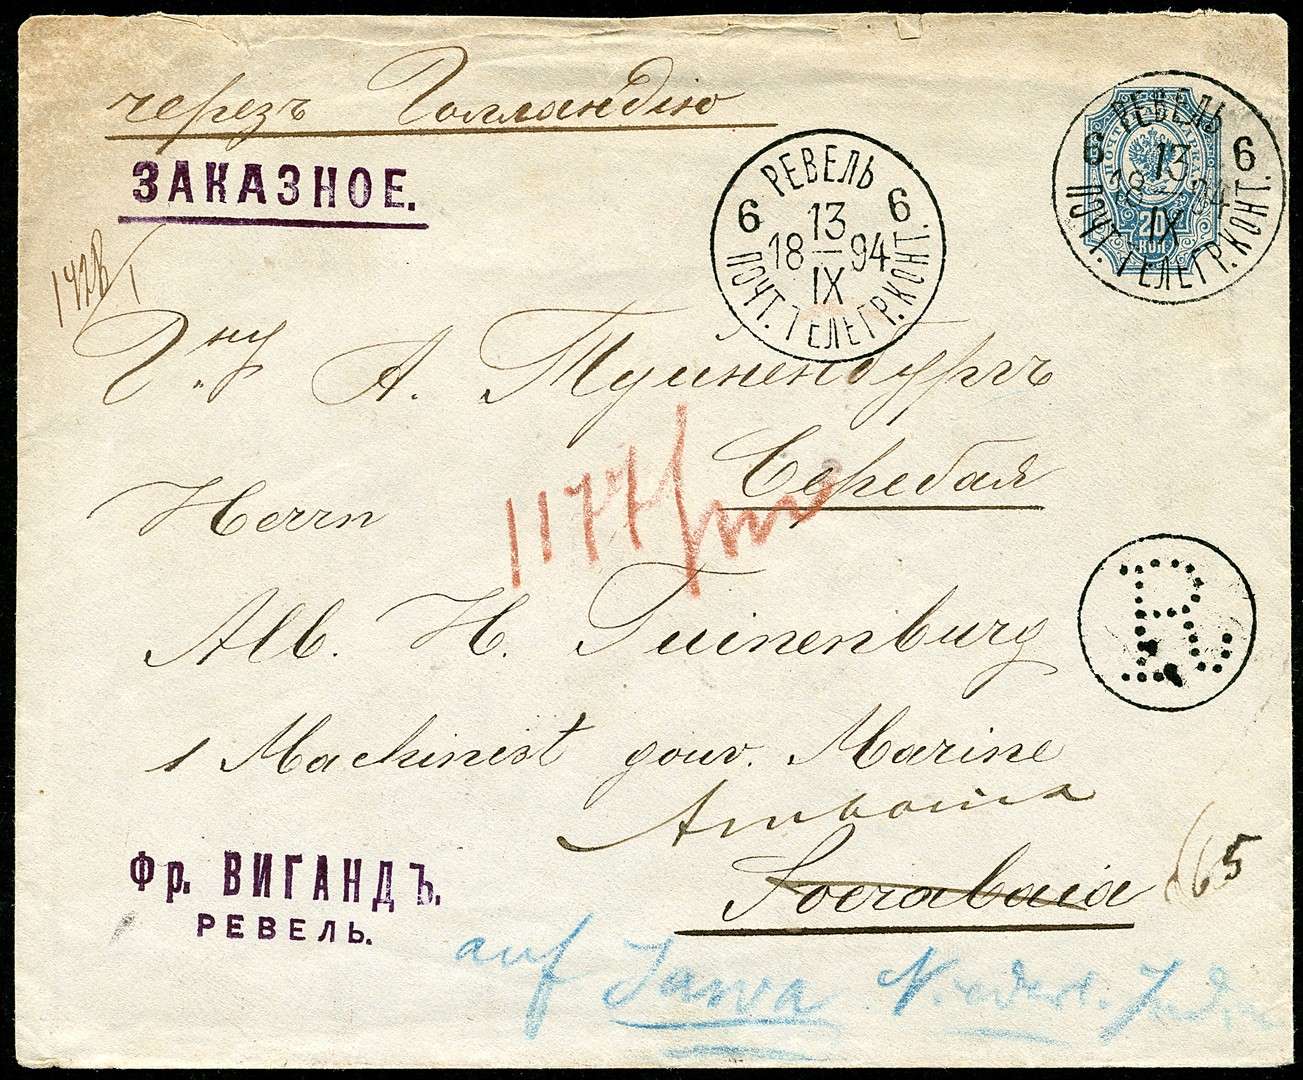 черезъ Голландію
ЗАКАЗНОЕ.
РЕВЕЛЬ
6 6
13
18 94
IX
ПОЧТ. ТЕЛЕГР. КОНТ.
РЕВЕЛЬ
6 6
13
18 94
IX
ПОЧТ. ТЕЛЕГР. КОНТ.
20
КОП
Г.ну А. Туйненбургъ
Серебая
Herrn
1177
R
Alb. H. Tuinenburg
1 Machinist gouv. Marine
Amboina
Soerabaia
65
Фр. ВИГАНДЪ.
РЕВЕЛЬ.
auf Jawa Niederl. Indien